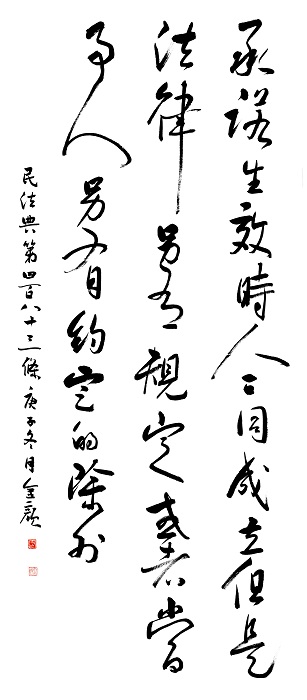 承諾生效時合同成立但是
法律另有規定或者當
事人另有約定的除外
民法典第四百八十三條庚子冬月